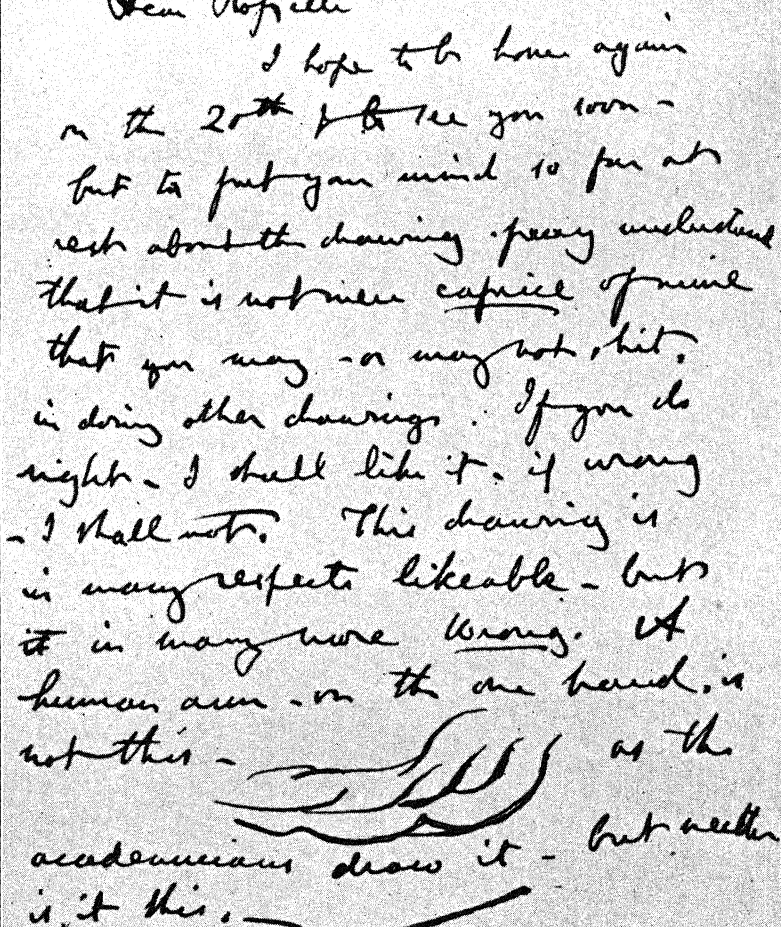 Dear Rossetti
I hope to be home again
on the 20th & to see you soon -
but to put your mind so far at
rest about the drawing. pray understand
that it is not mere caprice of mine
that you may - or may not, hit,
in doing other drawings. If you do
right - I shall like it. if wrong
- I shall not. This drawing is
in many respects likeable - but
it in many more wrong. A
human arm - on the one hand, is
not this - as the
academicians draw it - but neither
is, it this. -